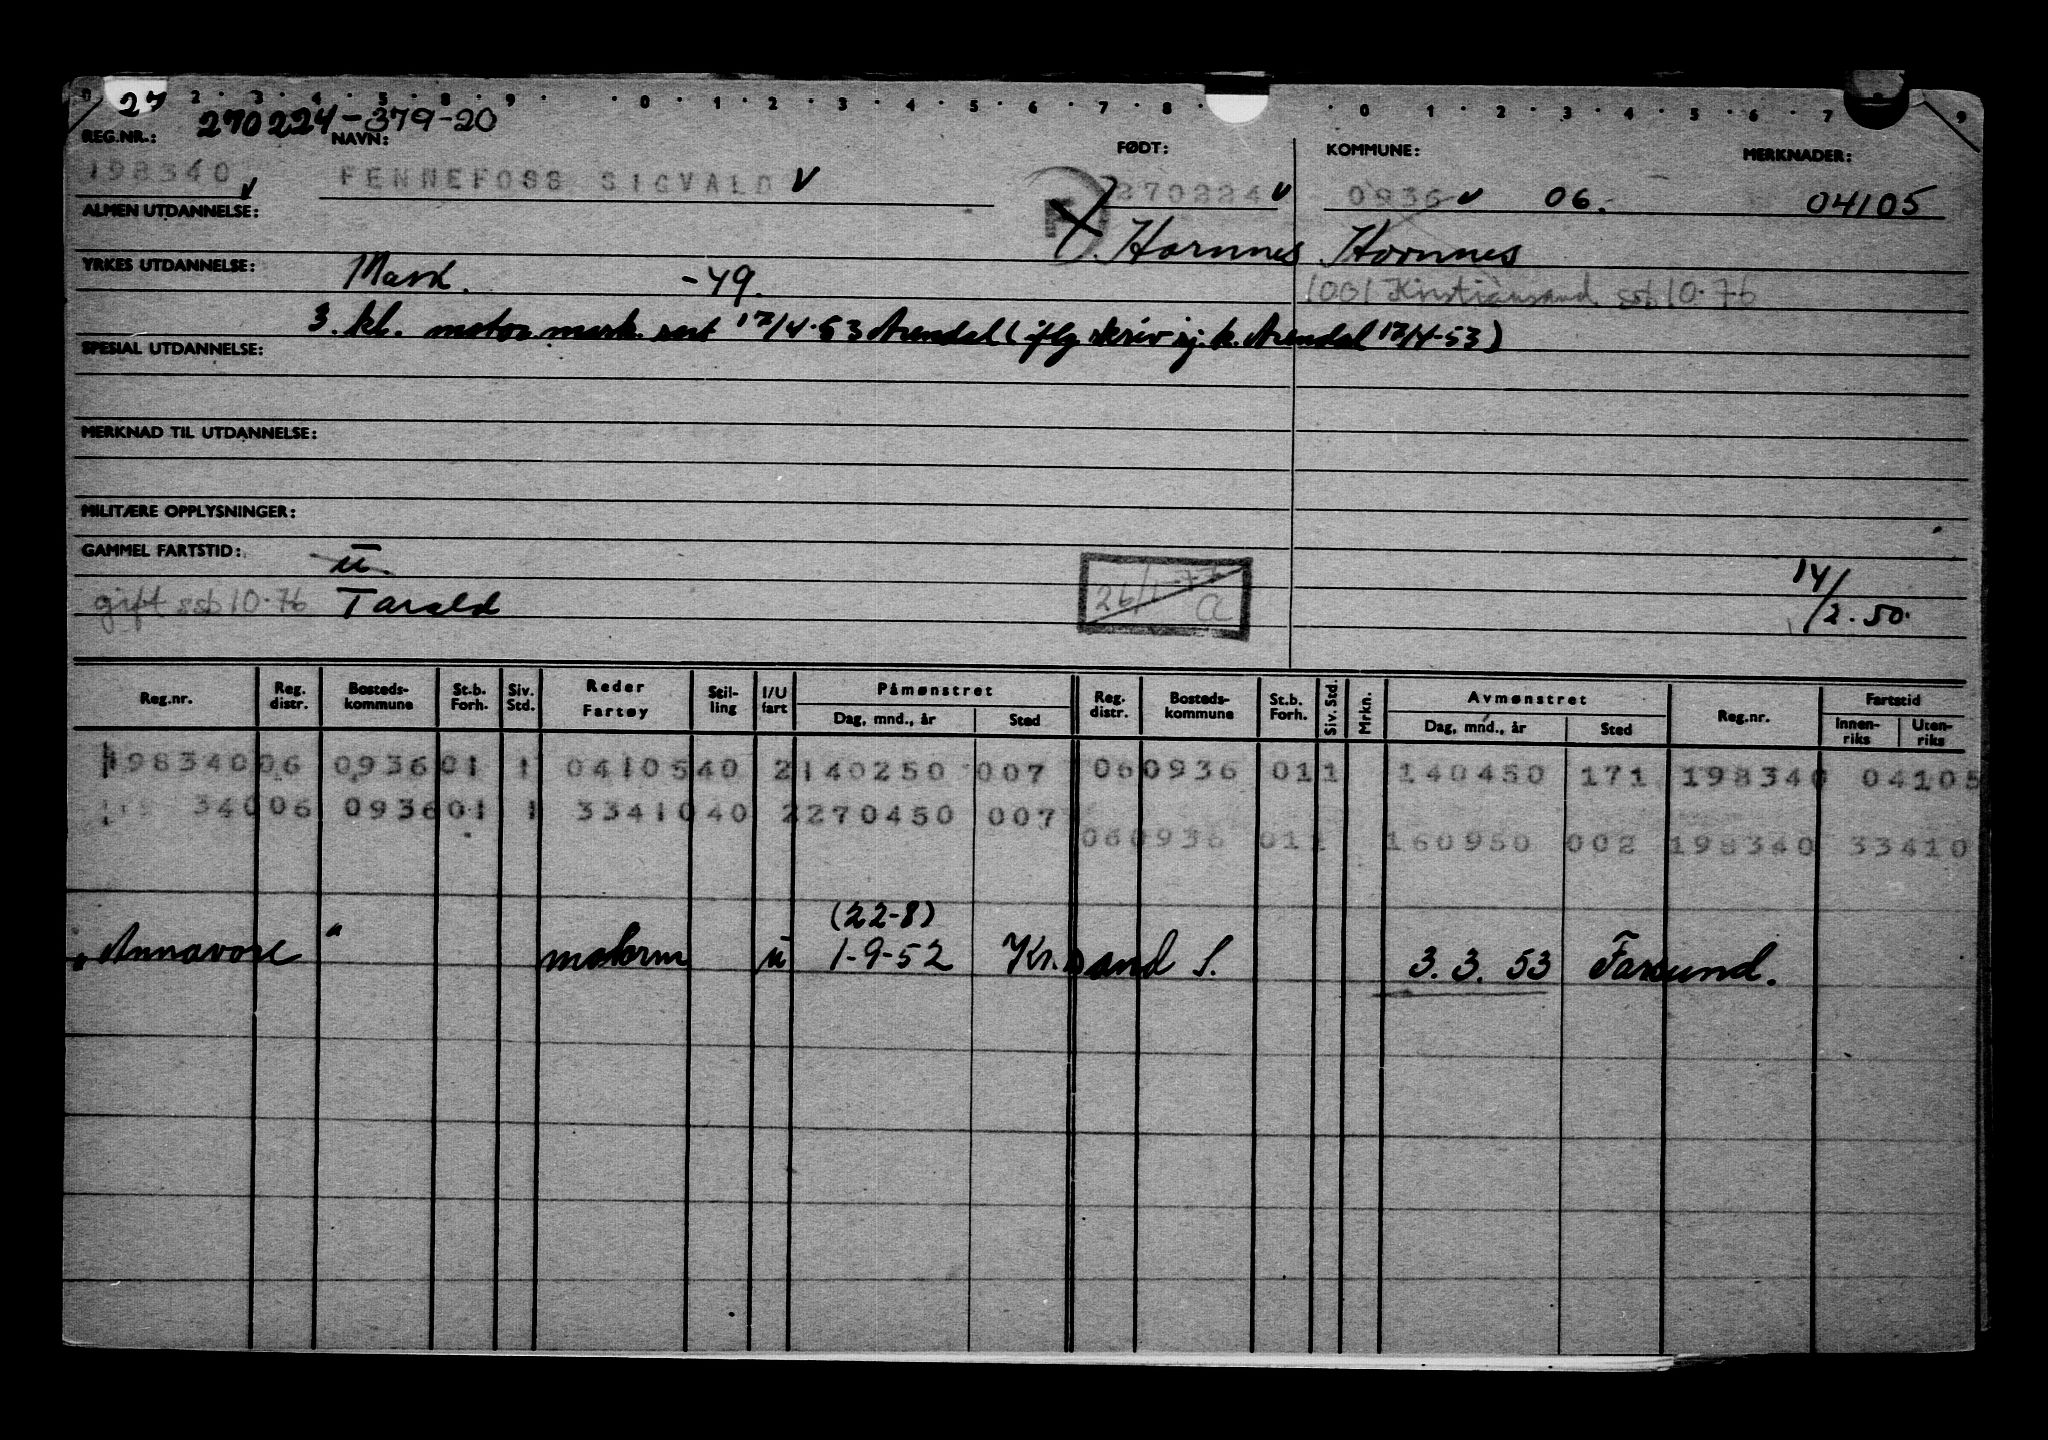 0 27 2 · 3 · 4 · 5 · 8 · 9 · · 0 · 1 · 2 · 3 · 4 · 5 · 6 · 7 · 8 · · 0 · 1 · 2 · 3 · 4 · 5 · 6 · 7 9
270224-379-20
REG.NR.: NAVN: FØDT: KOMMUNE: MERKNADER:
198340 FENNEFOSS SIGVALD 270224 0936 06. 04105
ALMEN UTDANNELSE: Hornnes Hornnes
YRKES UTDANNELSE: Mask. -49. 1001 Kristiansand ssb 10-76
3. kl. motor mask. sert 17/4-53 Arendal (iflg skriv sj. k. Arendal 17/4-53)
SPESIAL UTDANNELSE:
MERKNAD TIL UTDANNELSE:
MILITÆRE OPPLYSNINGER:
GAMMEL FARTSTID: u.
gift ssb 10-76 Tarald 26/1 a 14/2.50.
Reg.nr. Reg. distr. Bosteds- kommune St.b. Forh. Siv. Std. Reder Fartøy Stil- ling I/U fart Påmønstret Dag, mnd., år Sted Reg. distr. Bosteds- kommune St.b. Forh. Siv. Std. Mrkn. Avmønstret Dag, mnd., år Sted Reg.nr. Fartstid Innen- riks Uten- riks
198340 06 0936 01 1 04105 40 2 140250 007 06 0936 01 1 140450 171 198340 04105
340 06 0936 01 1 33410 40 2 270450 007
06 0936 01 1 160950 002 198340 33410
(22-8)
"Annavore" u 1-9-52 Kr.sand S. 3.3.53 Farsund.